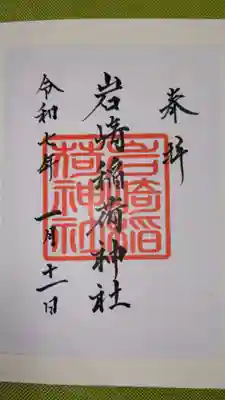 奉拝
岩崎稲荷神社
岩崎稲
荷神社
令和七年 一月十一日